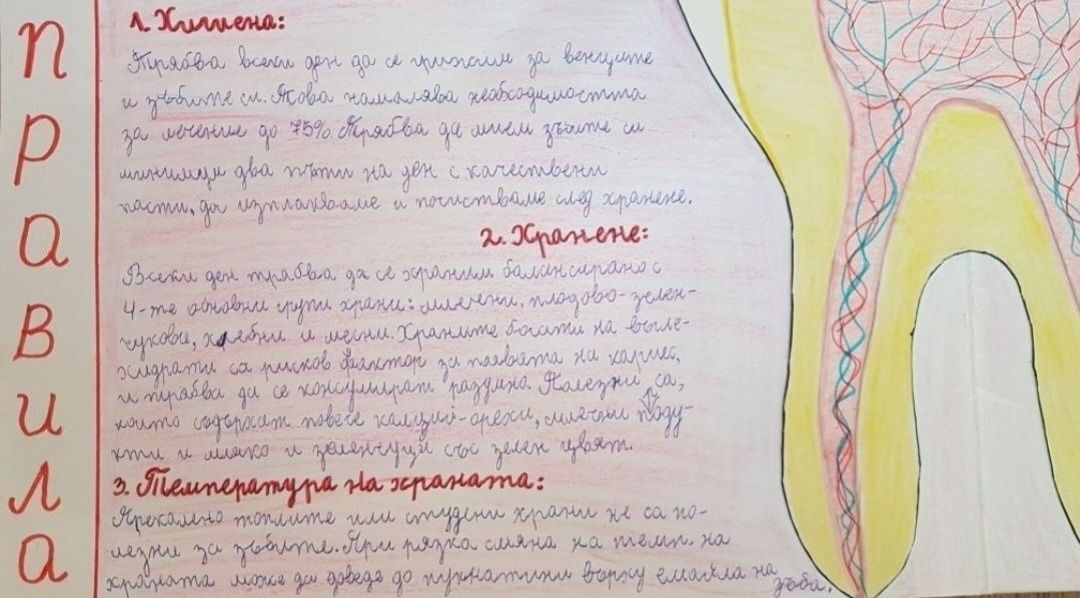 правила
1. Хигиена:
Трябва всеки ден да се грижим за венците
и зъбите си. Това намалява необходимостта
за лечение до 75%. Трябва да мием зъбите си
минимум два пъти на ден с качествени
пасти, да изплакваме и почистваме след хранене.
2. Хранене:
Всеки ден трябва да се храним балансирано с
4-те основни групи храни: млечни, плодово-зелен-
чукови, хлебни и месни. Храните богати на въгле-
хидрати са рисков фактор за появата на кариес,
и трябва да се консумират разумно. Полезни са,
които съдържат повече калций-орехи, млечни проду-
кти и мляко и зеленчуци със зелен цвят.
3. Температура на храната:
Прекалено топлите или студени храни не са по-
лезни за зъбите. При рязка смяна на темп. на
храната може да доведе до пукнатини върху емайла на
зъба.